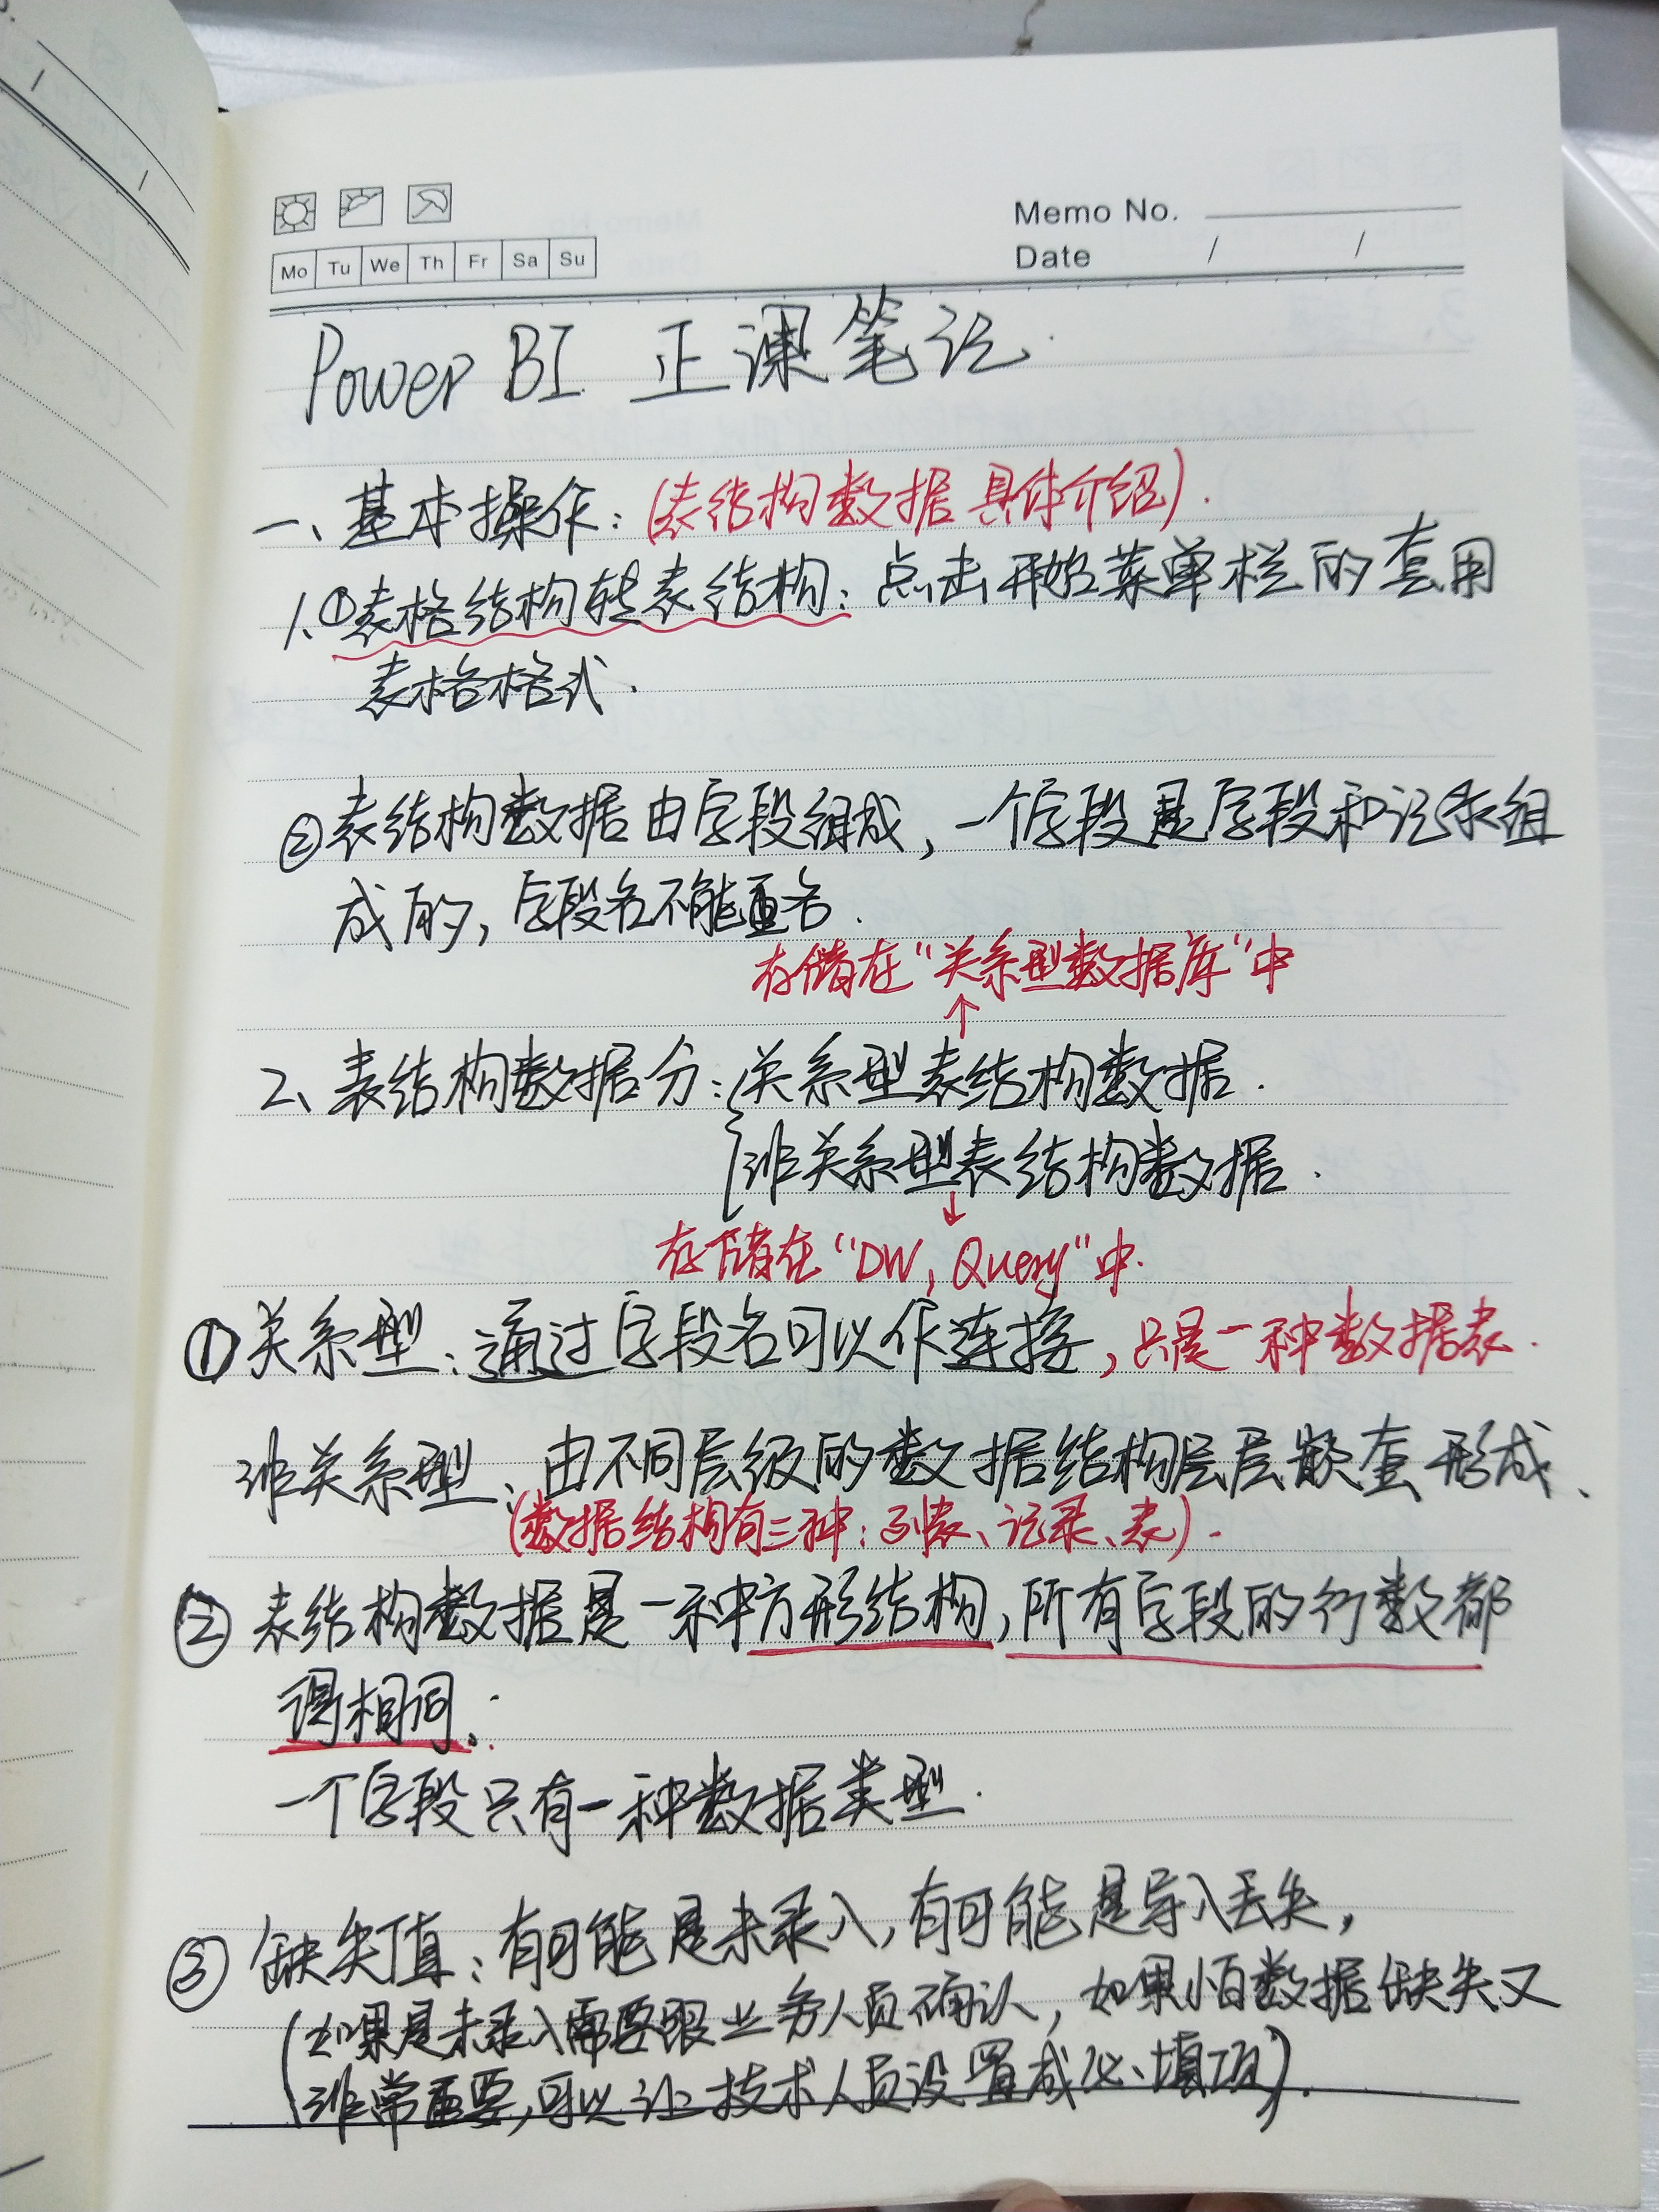 Memo No.
Mo Tu We Th Fr Sa Su
Date / /
Power BI 正课笔记.
一、基本操作：(表结构数据具体介绍).
1.①表格结构转表结构：点击开始菜单栏的套用
表格格式.
②表结构数据由字段组成，一个字段是字段和记录组
成的，字段名不能重名.
存储在“关系型数据库”中
↑
2、表结构数据分：关系型表结构数据.
非关系型表结构数据.
↓
存储在“DW, Query”中.
①关系型：通过字段名可以作连接，只是一种数据表.
非关系型：由不同层级的数据结构层层嵌套形成、
(数据结构有三种：列表、记录、表).
②表结构数据是一种方形结构，所有字段的行数都
得相同。
一个字段只有一种数据类型.
③缺失值：有可能是未录入，有可能是导入丢失，
(如果是未录入需要跟业务人员确认，如果怕数据缺失又
非常重要，可以让技术人员设置成必填项).